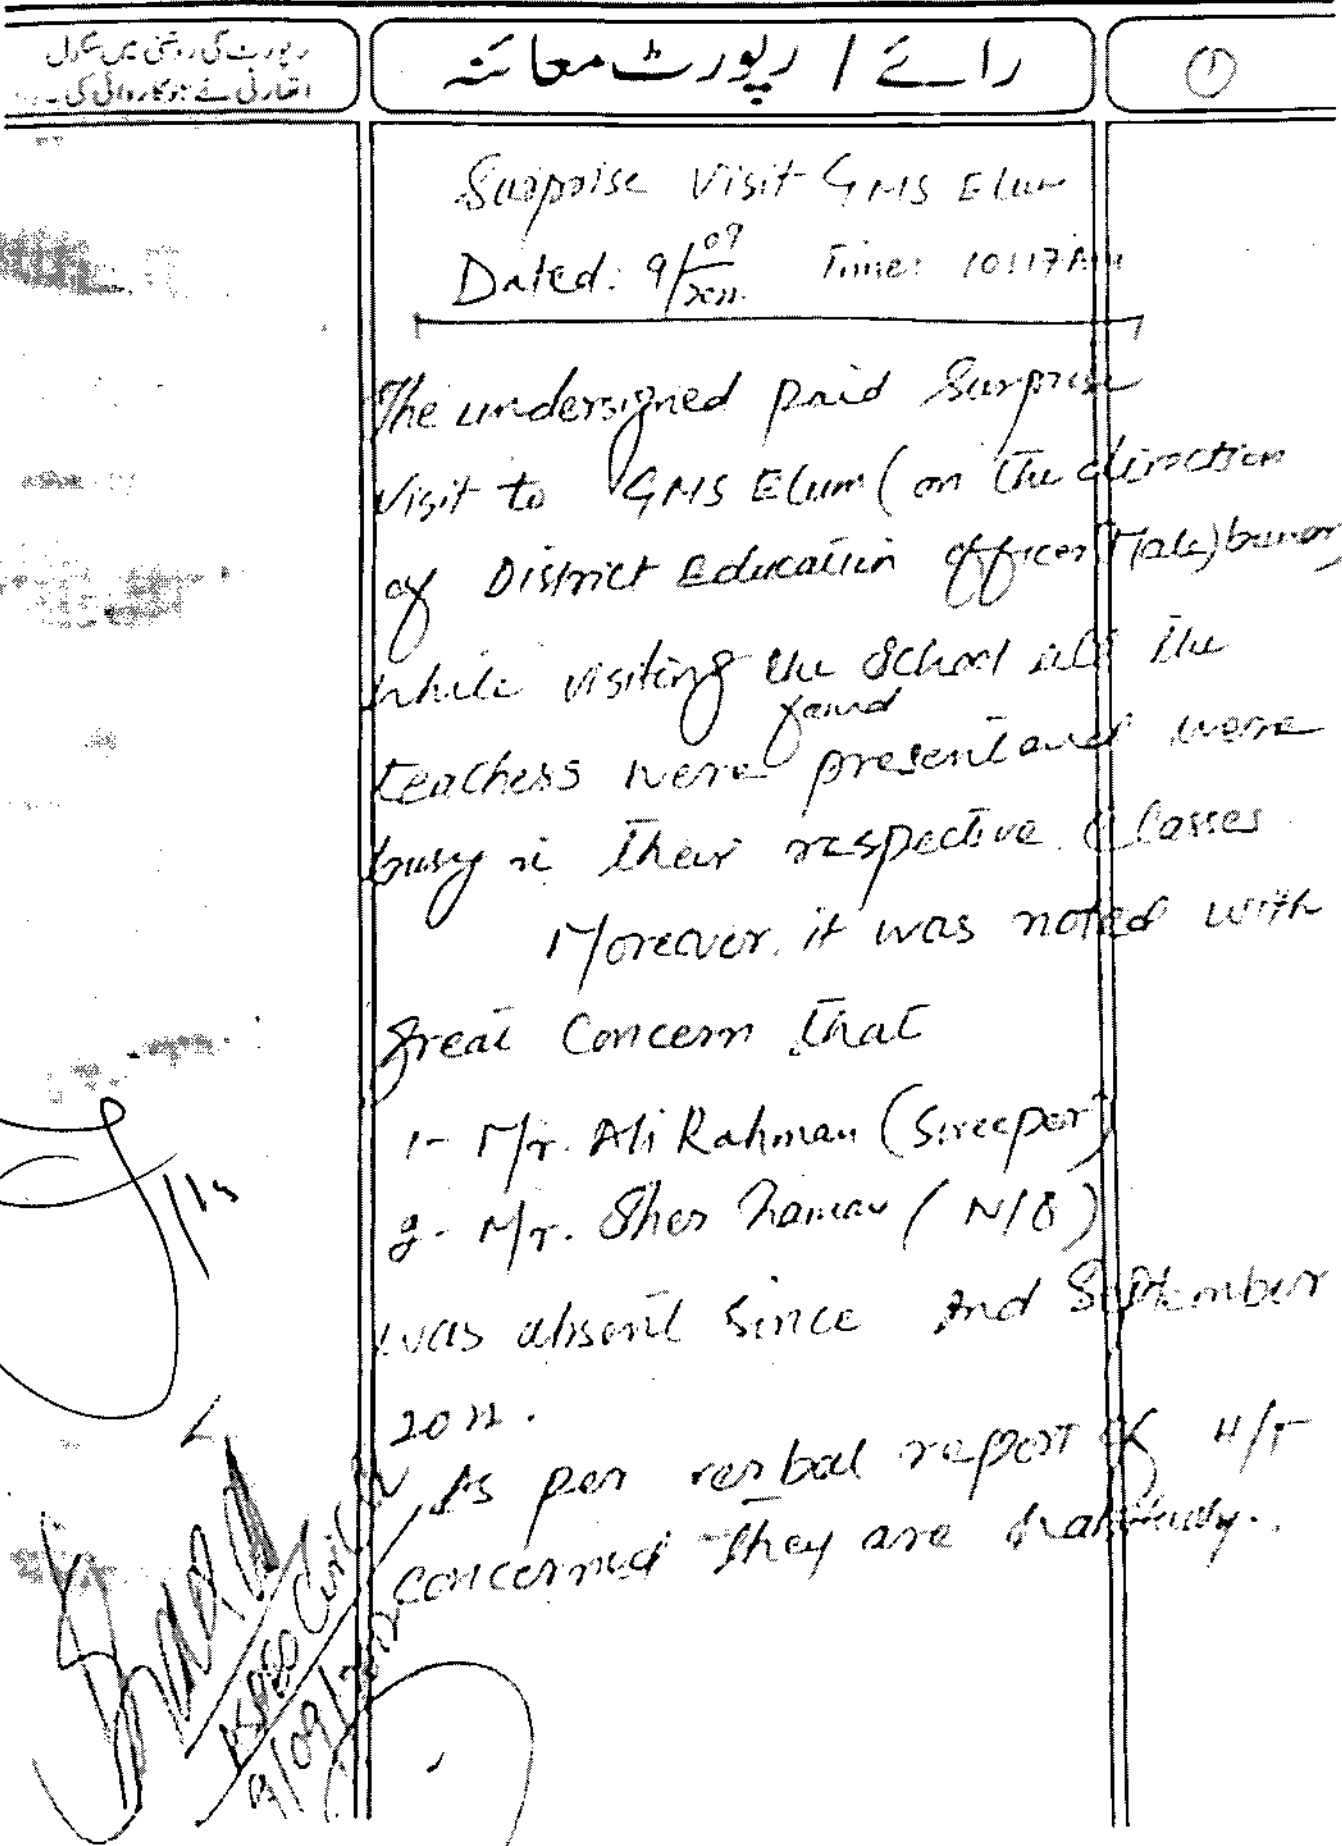 رپورٹ کی روشنی میں سکول
اتھارٹی نے جو کاروائی کی
رائے / رپورٹ معائنہ
1
Surprise Visit GMS Elum
Dated: 9/09/2022 Time: 10:17 AM
The undersigned paid Surprise
Visit to GMS Elum (on the direction
of District Education officer (Male) buner,
while visiting the School all the
teachers were found present and were
busy in their respective Classes
Moreover, it was noted with
great Concern that
1- Mr. Ali Rahman (Sweeper)
2- Mr. Sher Zaman (N/Q)
was absent since 2nd September
2022.
As per verbal report of H/T
concerned they are habitually.